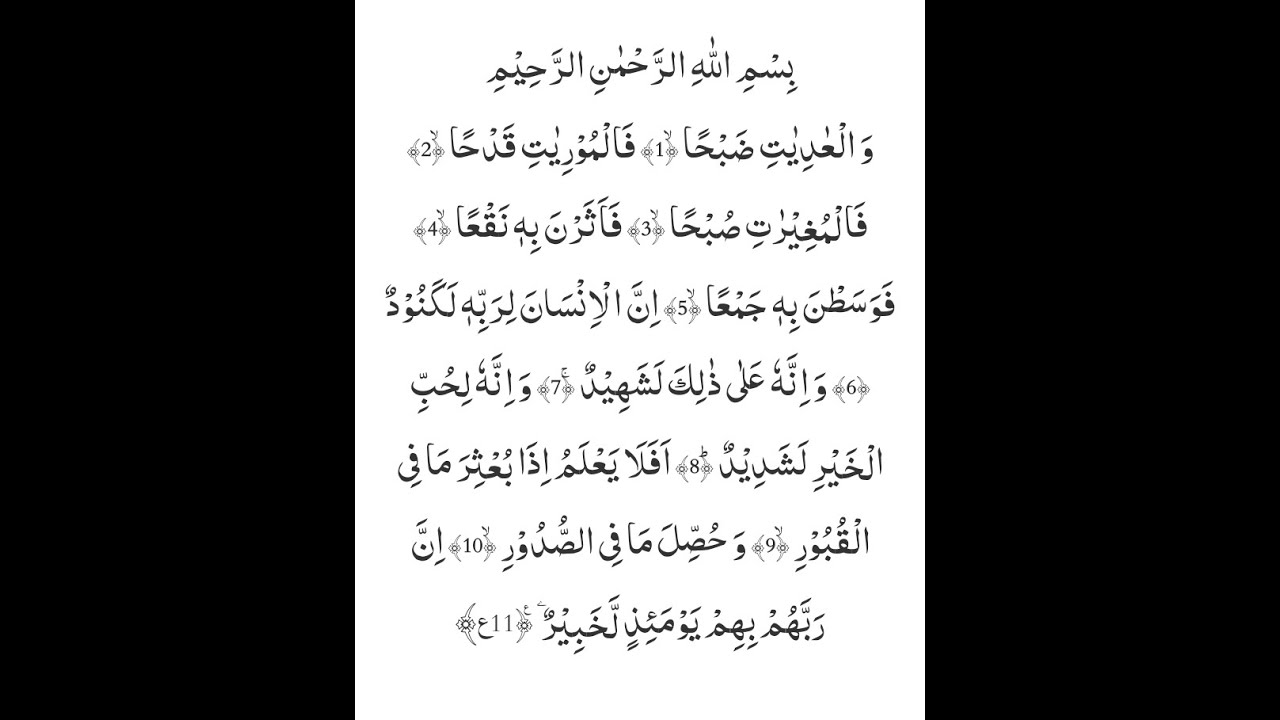 بِسْمِ اللّٰهِ الرَّحْمٰنِ الرَّحِیْمِ
وَ الْعٰدِیٰتِ ضَبْحًاۙ﴿1﴾ فَالْمُوْرِیٰتِ قَدْحًاۙ﴿2﴾
فَالْمُغِیْرٰتِ صُبْحًاۙ﴿3﴾ فَاَثَرْنَ بِهٖ نَقْعًاۙ﴿4﴾
فَوَسَطْنَ بِهٖ جَمْعًاۙ﴿5﴾ اِنَّ الْاِنْسَانَ لِرَبِّهٖ لَكَنُوْدٌ
﴿6﴾ وَ اِنَّهٗ عَلٰی ذٰلِكَ لَشَهِیْدٌۚ﴿7﴾ وَ اِنَّهٗ لِحُبِّ
الْخَیْرِ لَشَدِیْدٌؕ﴿8﴾ اَفَلَا یَعْلَمُ اِذَا بُعْثِرَ مَا فِی
الْقُبُوْرِۙ﴿9﴾ وَ حُصِّلَ مَا فِی الصُّدُوْرِۙ﴿10﴾ اِنَّ
رَبَّهُمْ بِهِمْ یَوْمَئِذٍ لَّخَبِیْرٌ۠﴿11ع﴾